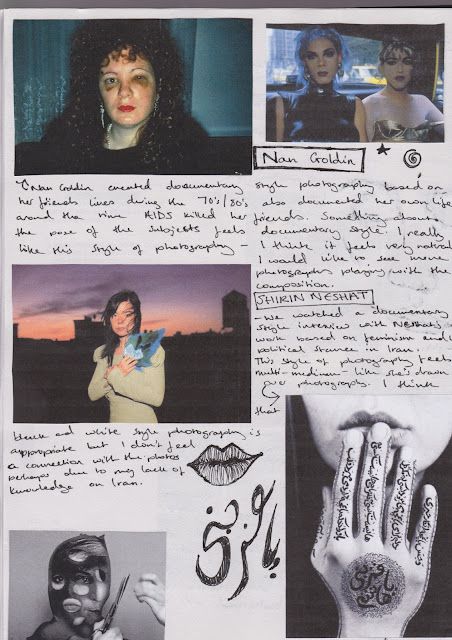 Nan Goldin
Nan Goldin created documentary
her friends lives during the 70's/80's
around the time AIDS killed her
the pose of the subjects feels
like this style of photography -
style photography based on
also documented her own life
friends. Something about
documentary style. I really
I think it feels very natural
I would like to see more
photographs playing with the
composition.
SHIRIN NESHAT
- We watched a documentary
style interview with Neshat's
work based on feminism and
political stance in Iran.
This style of photography feels
multi-medium - like she's drawn
over photography. I think
that
black and white style photography is
appropriate but I don't feel
a connection with the photos
perhaps due to my lack of
knowledge on Iran.